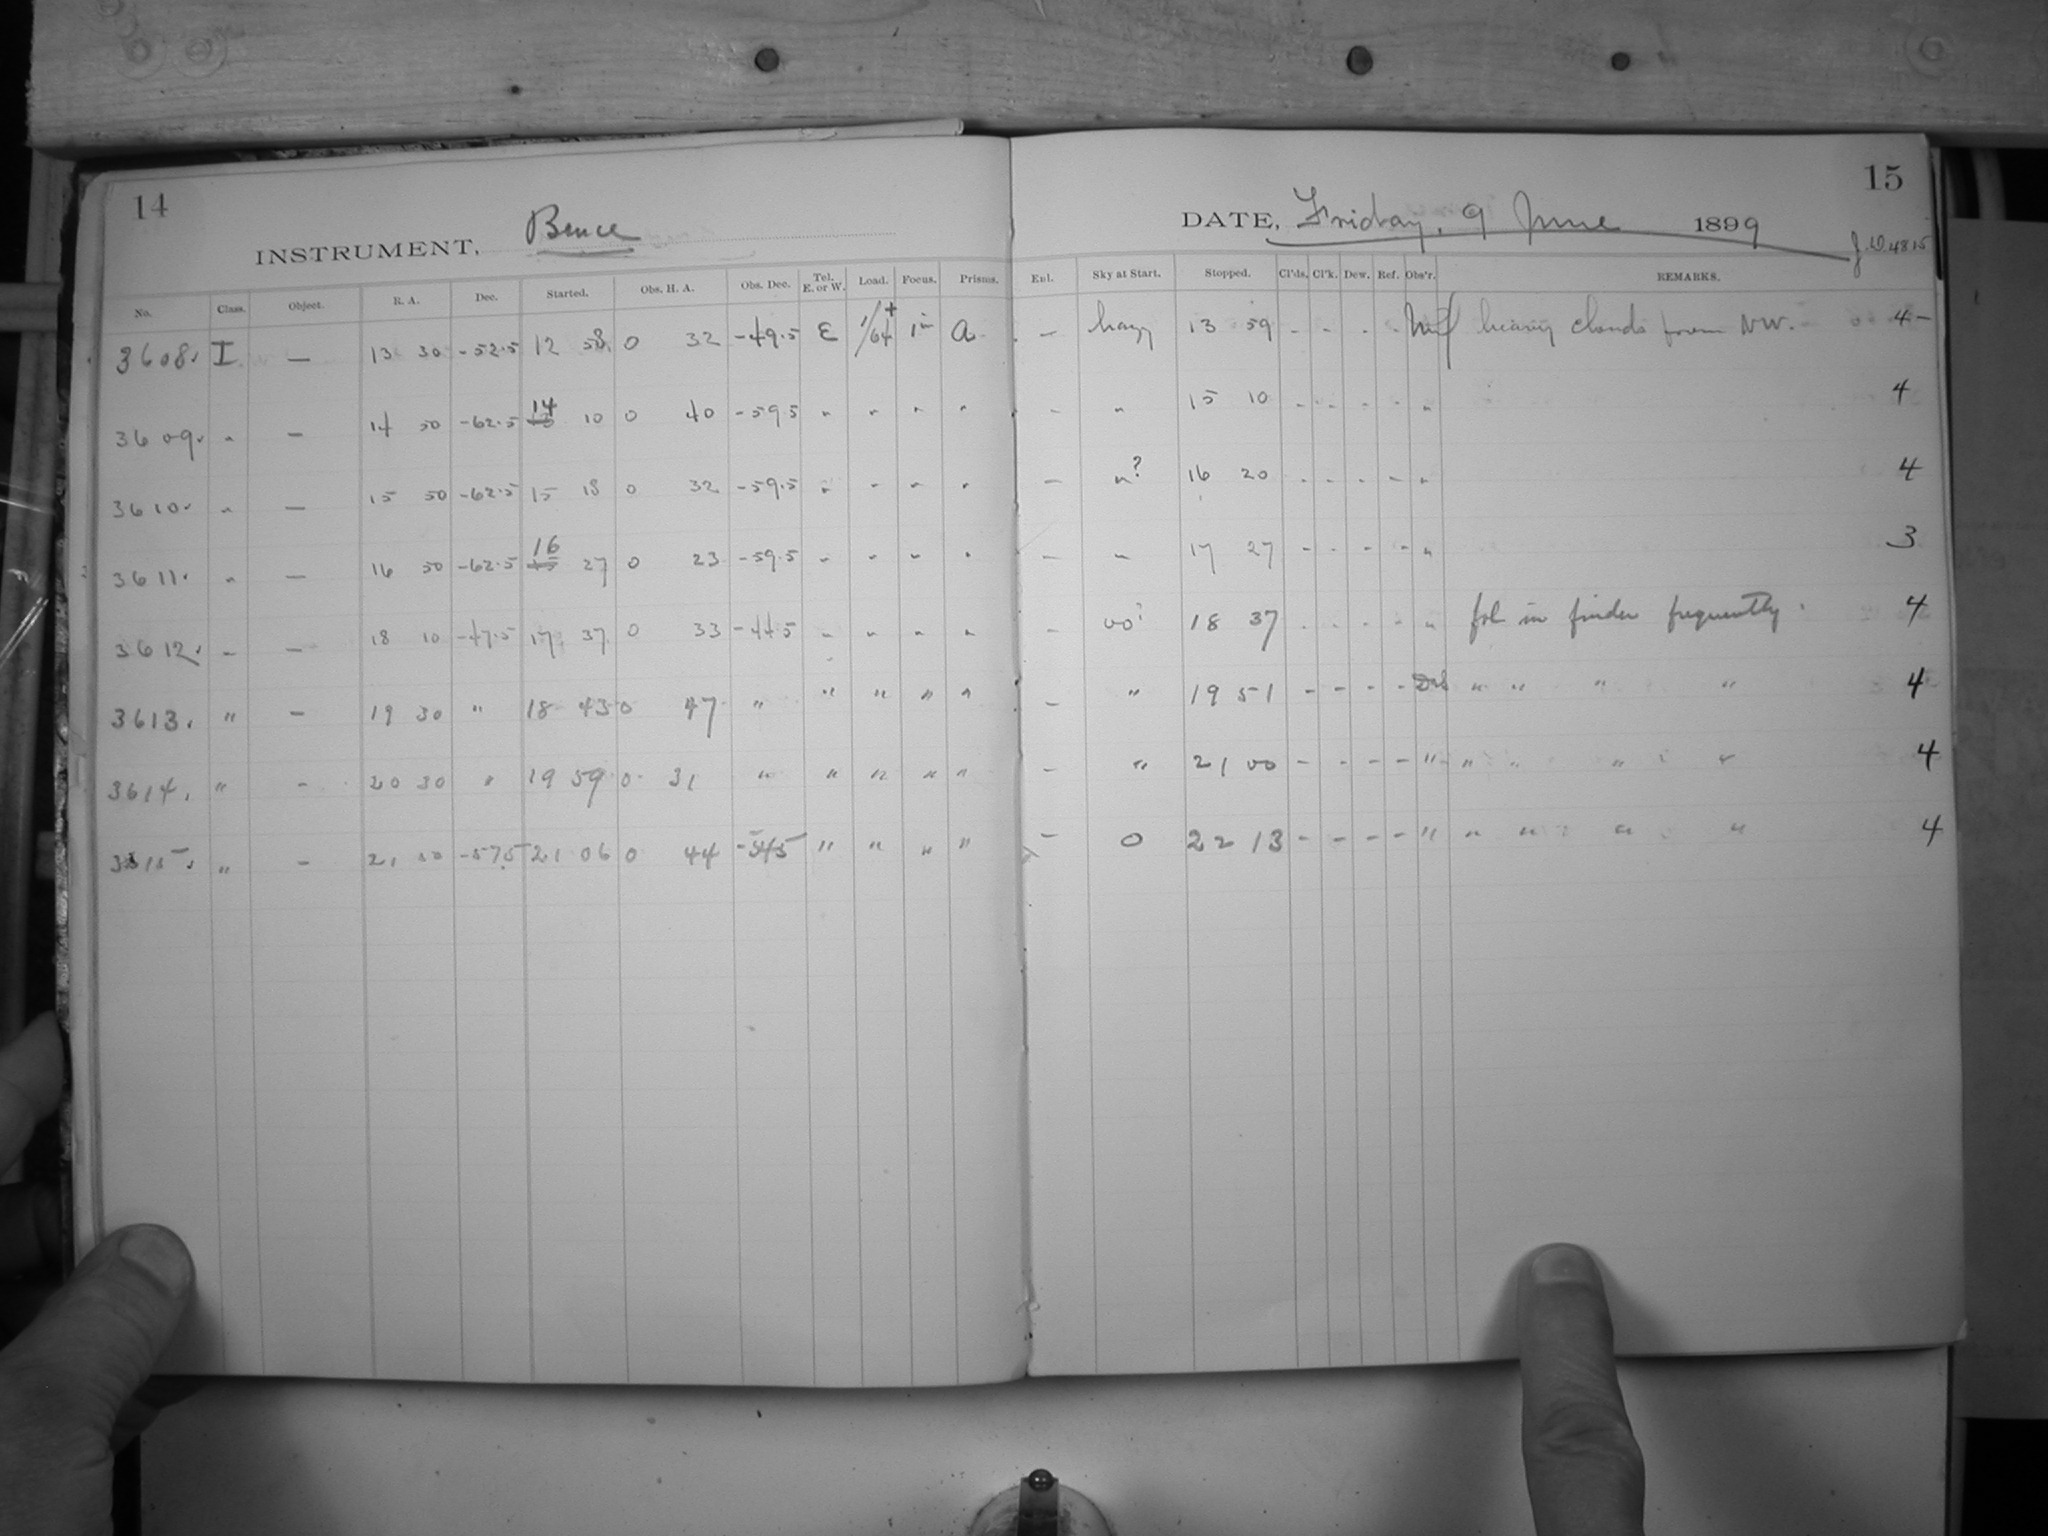 14
INSTRUMENT, Bruce
No. Class. Object. R. A. Dec. Started. Obs. H. A. Obs. Dec. Tel. E. or W. Load. Focus. Prisms.
3608. I — 13 30 -52.5 12 58 0 32 -49.5 E 1/64+ 1 in a
3609. " — 14 50 -62.5 14 10 0 40 -59.5 " " " "
3610. " — 15 50 -62.5 15 18 0 32 -59.5 " " " "
3611. " — 16 50 -62.5 16 27 0 23 -59.5 " " " "
3612. " — 18 10 -47.5 17 37 0 33 -44.5 " " " "
3613. " — 19 30 " 18 43 0 47 " " " " "
3614. " - 20 30 " 19 59 0 31 " " " " "
3615. " - 21 50 -57.5 21 06 0 44 -54.5 " " " "
15
DATE, Friday, 9 June 1899
J.D. 4815
Enl. Sky at Start. Stopped. Cl'ds. Cl'k. Dew. Ref. Obs'r. REMARKS.
— hazy 13 59 - - - - heavy clouds from NW. 4-
- " 15 10 - - - - " 4
— "? 16 20 - - - - " 4
— " 17 27 - - - - " 3
- oo? 18 37 - - - - " fol in finder frequently. 4
- " 19 51 - - - - " " " " 4
- " 21 00 - - - - " " " " " 4
- 0 22 13 - - - - " " " " " 4